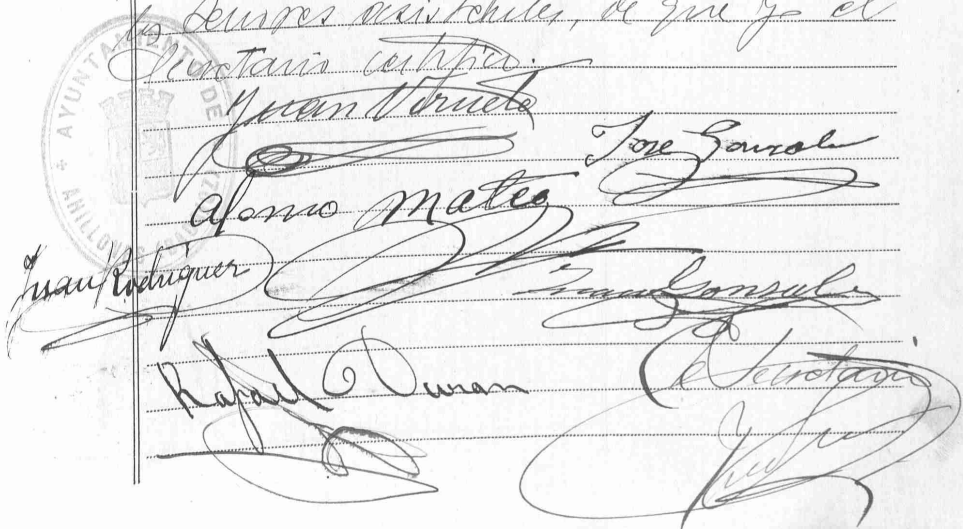 los Señores asistentes, de que yo el
Secretario certifico.
Juan Vizuete
José Gonzalez
Alfonso Mateo
Juan Rodriguez
Juan Gonzalez
Rafael Duran
El Secretario
AYUNTAMIENTO DE
AHILLONES